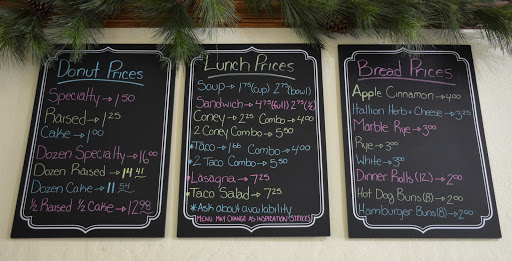 Donut Prices
Specialty → 1.50
Raised → 1.25
Cake → 1.00
Dozen Specialty → 16.00
Dozen Raised → 14.41
Dozen Cake → 11.54
1/2 Raised 1/2 Cake → 12.98
Lunch Prices
Soup → 1.75 (cup) 2.75 (bowl)
Sandwich → 4.75 (full) 2.75 (1/2)
Coney → 2.25 Combo → 4.00
2 Coney Combo → 5.50
*Taco → 1.66 Combo → 4.00
*2 Taco Combo → 5.50
Lasagna → 7.25
*Taco Salad → 7.25
*Ask about availability
MENU MAY CHANGE AS INSPIRATION STRIKES
Bread Prices
Apple Cinnamon → 4.00
Itallion Herb + Cheese → 3.25
Marble Rye → 3.00
Rye → 3.00
White → 3.00
Dinner Rolls (12) → 2.00
Hot Dog Buns (8) → 2.00
Hamburger Buns (8) → 2.00